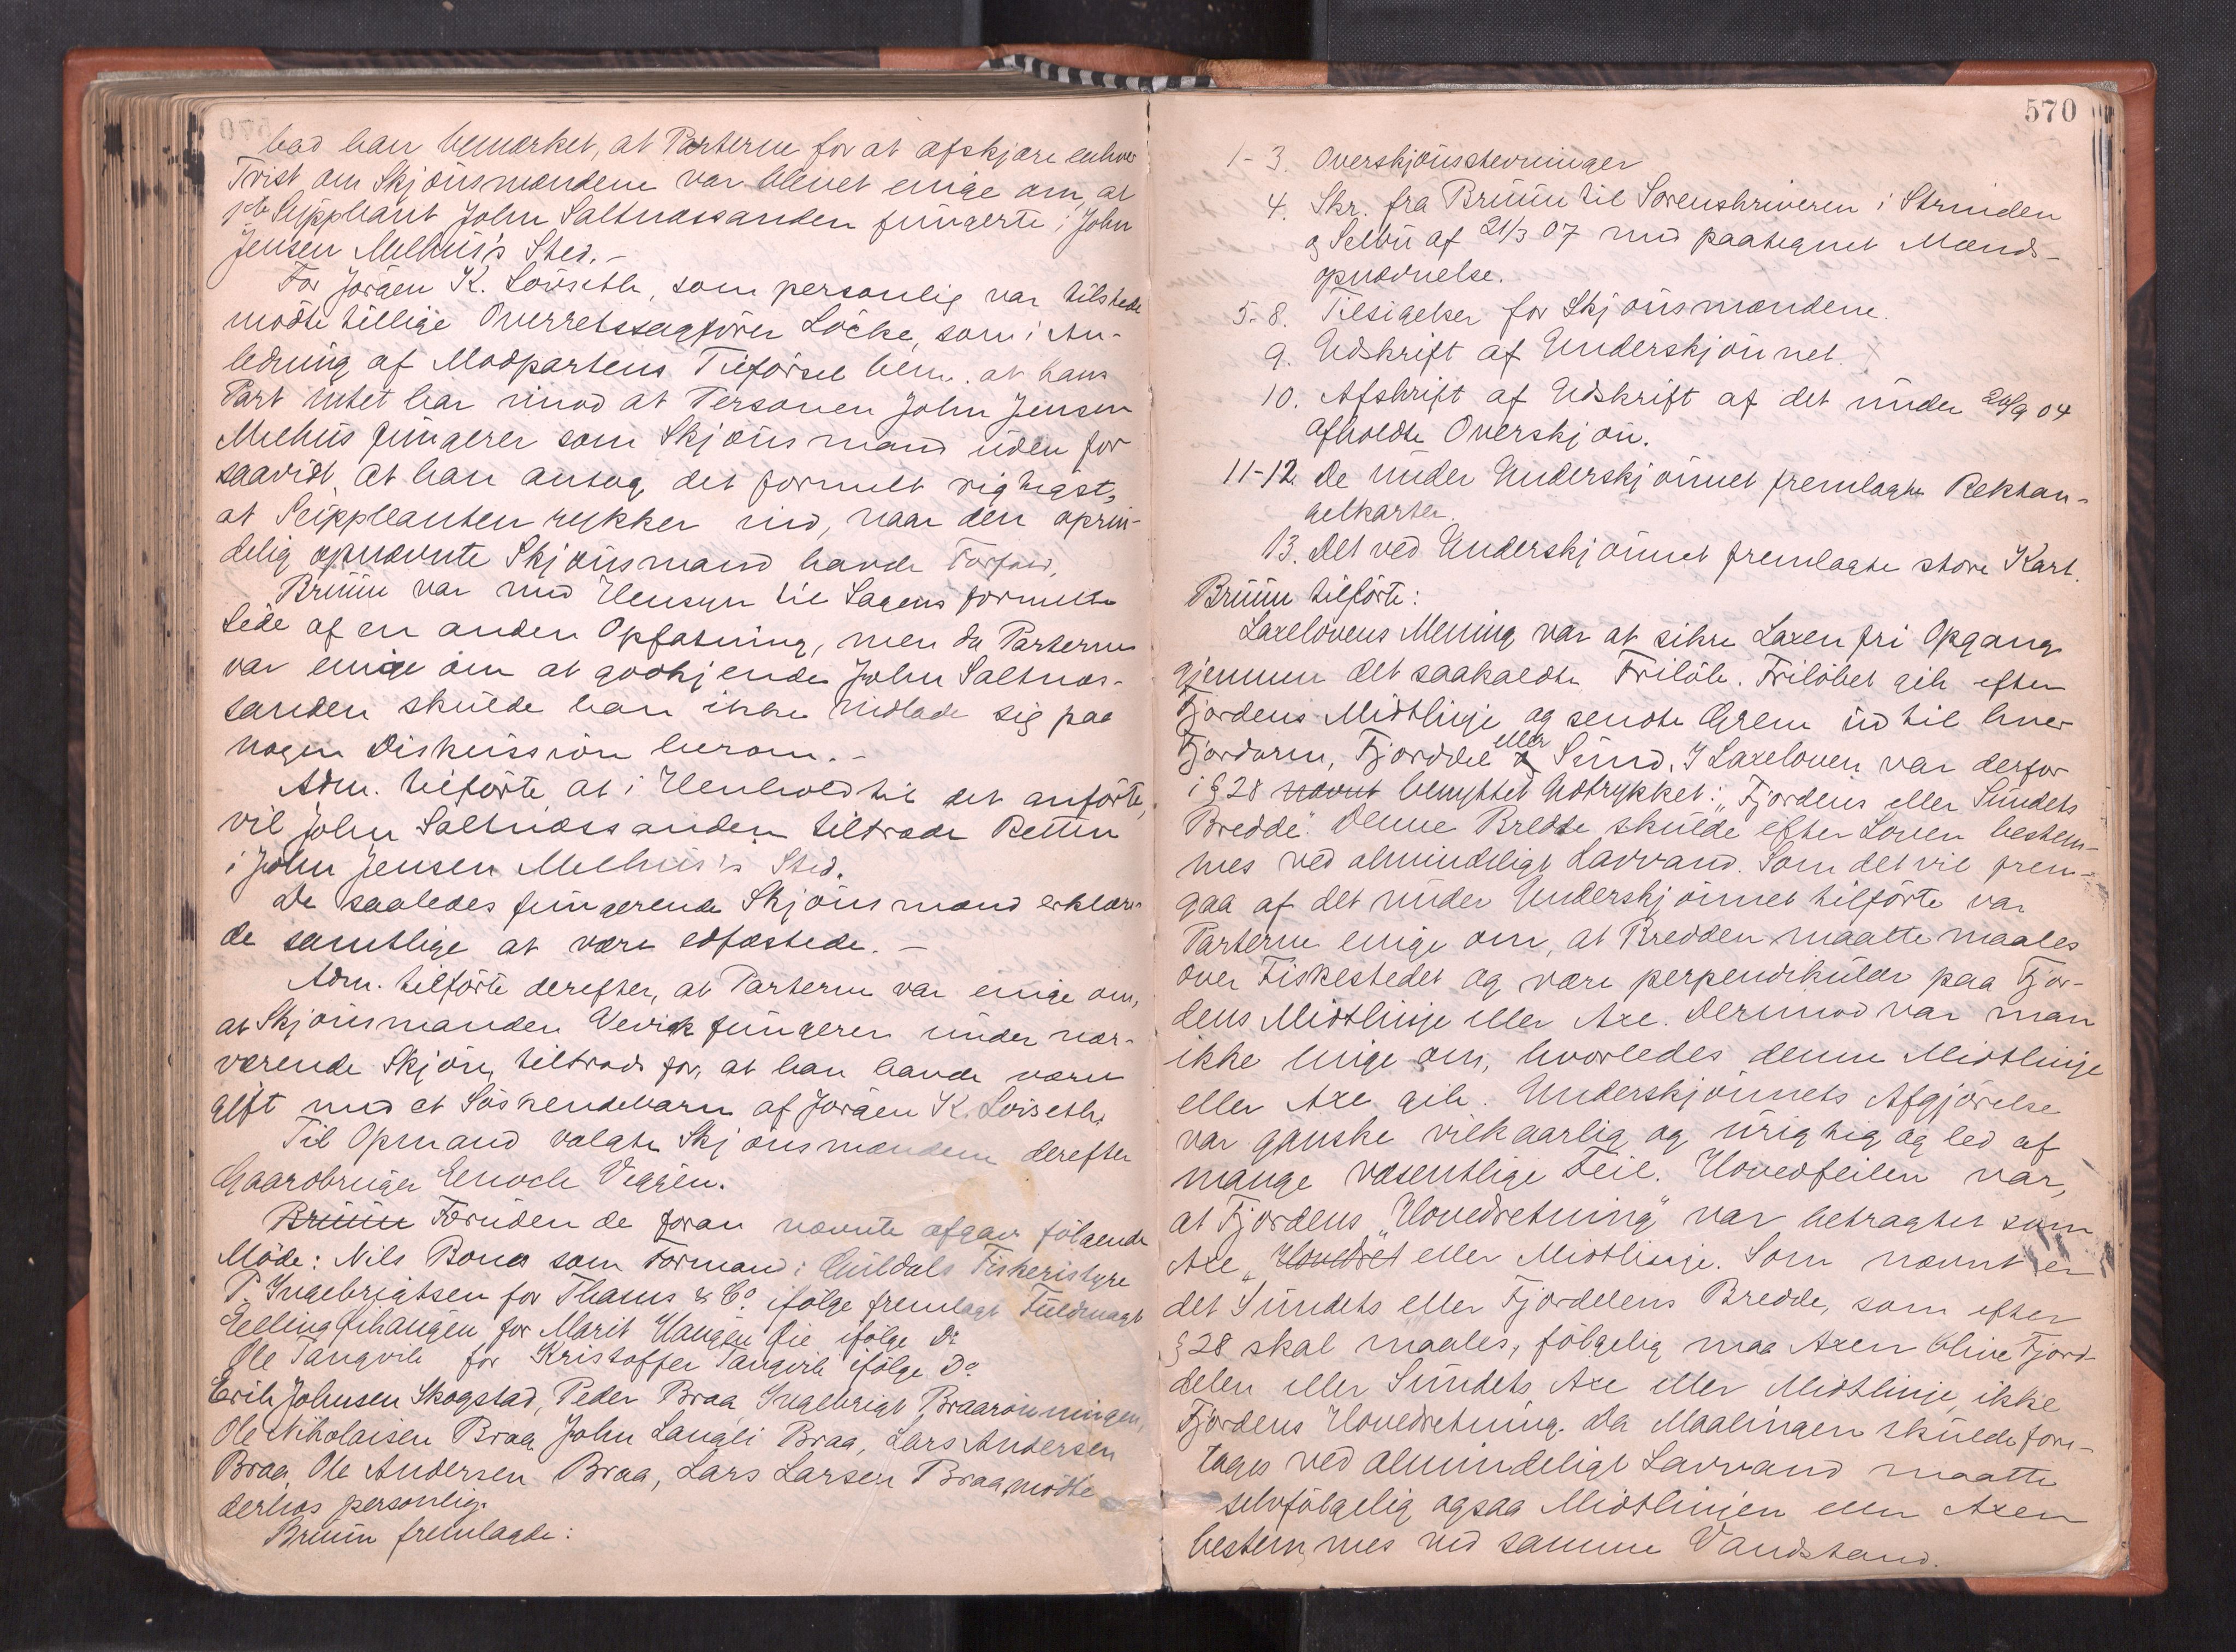 bad han bemærket, at Parterne for at afskjære enhver
Tvist om Skjønsmændene var blevet enige om, at
1ste Suppleant John Saltnæssanden fungerte i John
Jensen Melhus's Sted.-
For Jörgen K. Löisеth, som personlig var tilstede
mödte tillige Overretssagförer Löcke, som i An-
ledning af Modpartens Tilförsel bem. at hans
Part intet har imod at Personen John Jensen
Melhus fungerer som Skjönsmand uden for
saavidt at han antog det formelt rigtigst,
at Suppleanten rykker ind, naar den oprin-
delig opnævnte Skjönsmand havde Forfald.
Bruun var med Hensyn til Sagens formelle
Side af en anden Opfatning, men da Parterne
var enige om at godkjende John Saltnæs-
sanden skulde han ikke indlade sig paa
nogen Diskussion herom.-
Adm. tilförte at i Henhold til det anförte,
vil John Saltnæssanden tiltræde Retten
i John Jensen Melhus's Sted.
De saaledes fungerende Skjönsmænd erklære-
de samtlige at være edfæstede.-
Adm. tilförte derefter, at Parterne var enige om,
at Skjönsmanden Vevik fungerer under nær-
værende Skjön, tiltrods for, at han havde været
gift med et Söskendebarn af Jörgen K. Löiseth.
Til Opmand valgte Skjönsmændene derefter
Gaardbruger Enoch Viggen.
Bruun Foruden de foran nævnte afgav fölgende
Möde: Nils Bones som Formand i Guldals Fiskeristyre
P. Ingebrigtsen for Thams & Co. ifölge fremlagt Fuldmagt
for Marit Haugen Öie ifölge Do
Ole Tangvik for Kristoffer Tangvik ifölge Do
Erik Johnsen Skogstad, Peder Braa, Ingebrigt Braarönningen,
Ole Nikolaisen Braa, John Langli Braa, Lars Andersen
Braa, Ole Andersen Braa, Lars Larsen Braa, mödte
derhos personlig.
Bruun fremlagde:
570
1-3. Overskjönsstevninger
4. Skr. fra Bruun til Sorenskriveren i Strinden
og Selbu af 21/3 07 med paategnet Mænds-
opnævnelse.
5-8. Tilsigelser for Skjönsmændene.
9. Udskrift af Underskjönnet.
10. Afskrift af Udskrift af det under 20/9 04
afholdte Overskjön.
11-12. De under Underskjönnet fremlagte Rektan-
gelkarter.
13. Det ved Underskjönnet fremlagte store Kart.
Bruun tilförte:
Laxelovens Mening var at sikre Laxen fri Opgang
gjennem det saakaldte Friløb. Friløbet gik efter
Fjordens Midtlinje og sendte Grene ind til hver
Fjordarm, Fjorddel eller Sund. I Laxeloven var derfor
i § 28 nævnt benyttet Udtrykket: "Fjordens eller Sundets
Bredde". Denne Bredde skulde efter Loven bestem-
mes ved almindeligt Lavvand. Som det vil frem-
gaa af det under Underskjönnet tilförte var
Parterne enige om, at Bredden maatte maales
over Fiskestedet og være perpendikulær paa Fjor-
dens Midtlinje eller Axe. Derimod var man
ikke enige om, hvorledes denne Midtlinje
eller Axe gik. Underskjönnets Afgjörelse
var ganske vilkaarlig og urigtig og led af
mange væsentlige Feil. Hovedfeilen var,
at Fjordens "Hovedretning" var betragtet som
Axe "Hovedret eller Midtlinje. Som nævnt er
det Sundets eller Fjorddelens Bredde, som efter
§ 28 skal maales, fölgelig maa Axen blive Fjord-
delen eller Sundets Axe eller Midtlinje, ikke
Fjordens Hovedretning. Da Maalingen skulde fore-
tages ved almindeligt Lavvand maatte
selvfölgelig ogsaa Midtlinjen eller Axen
bestemmes ved samme Vandstand.